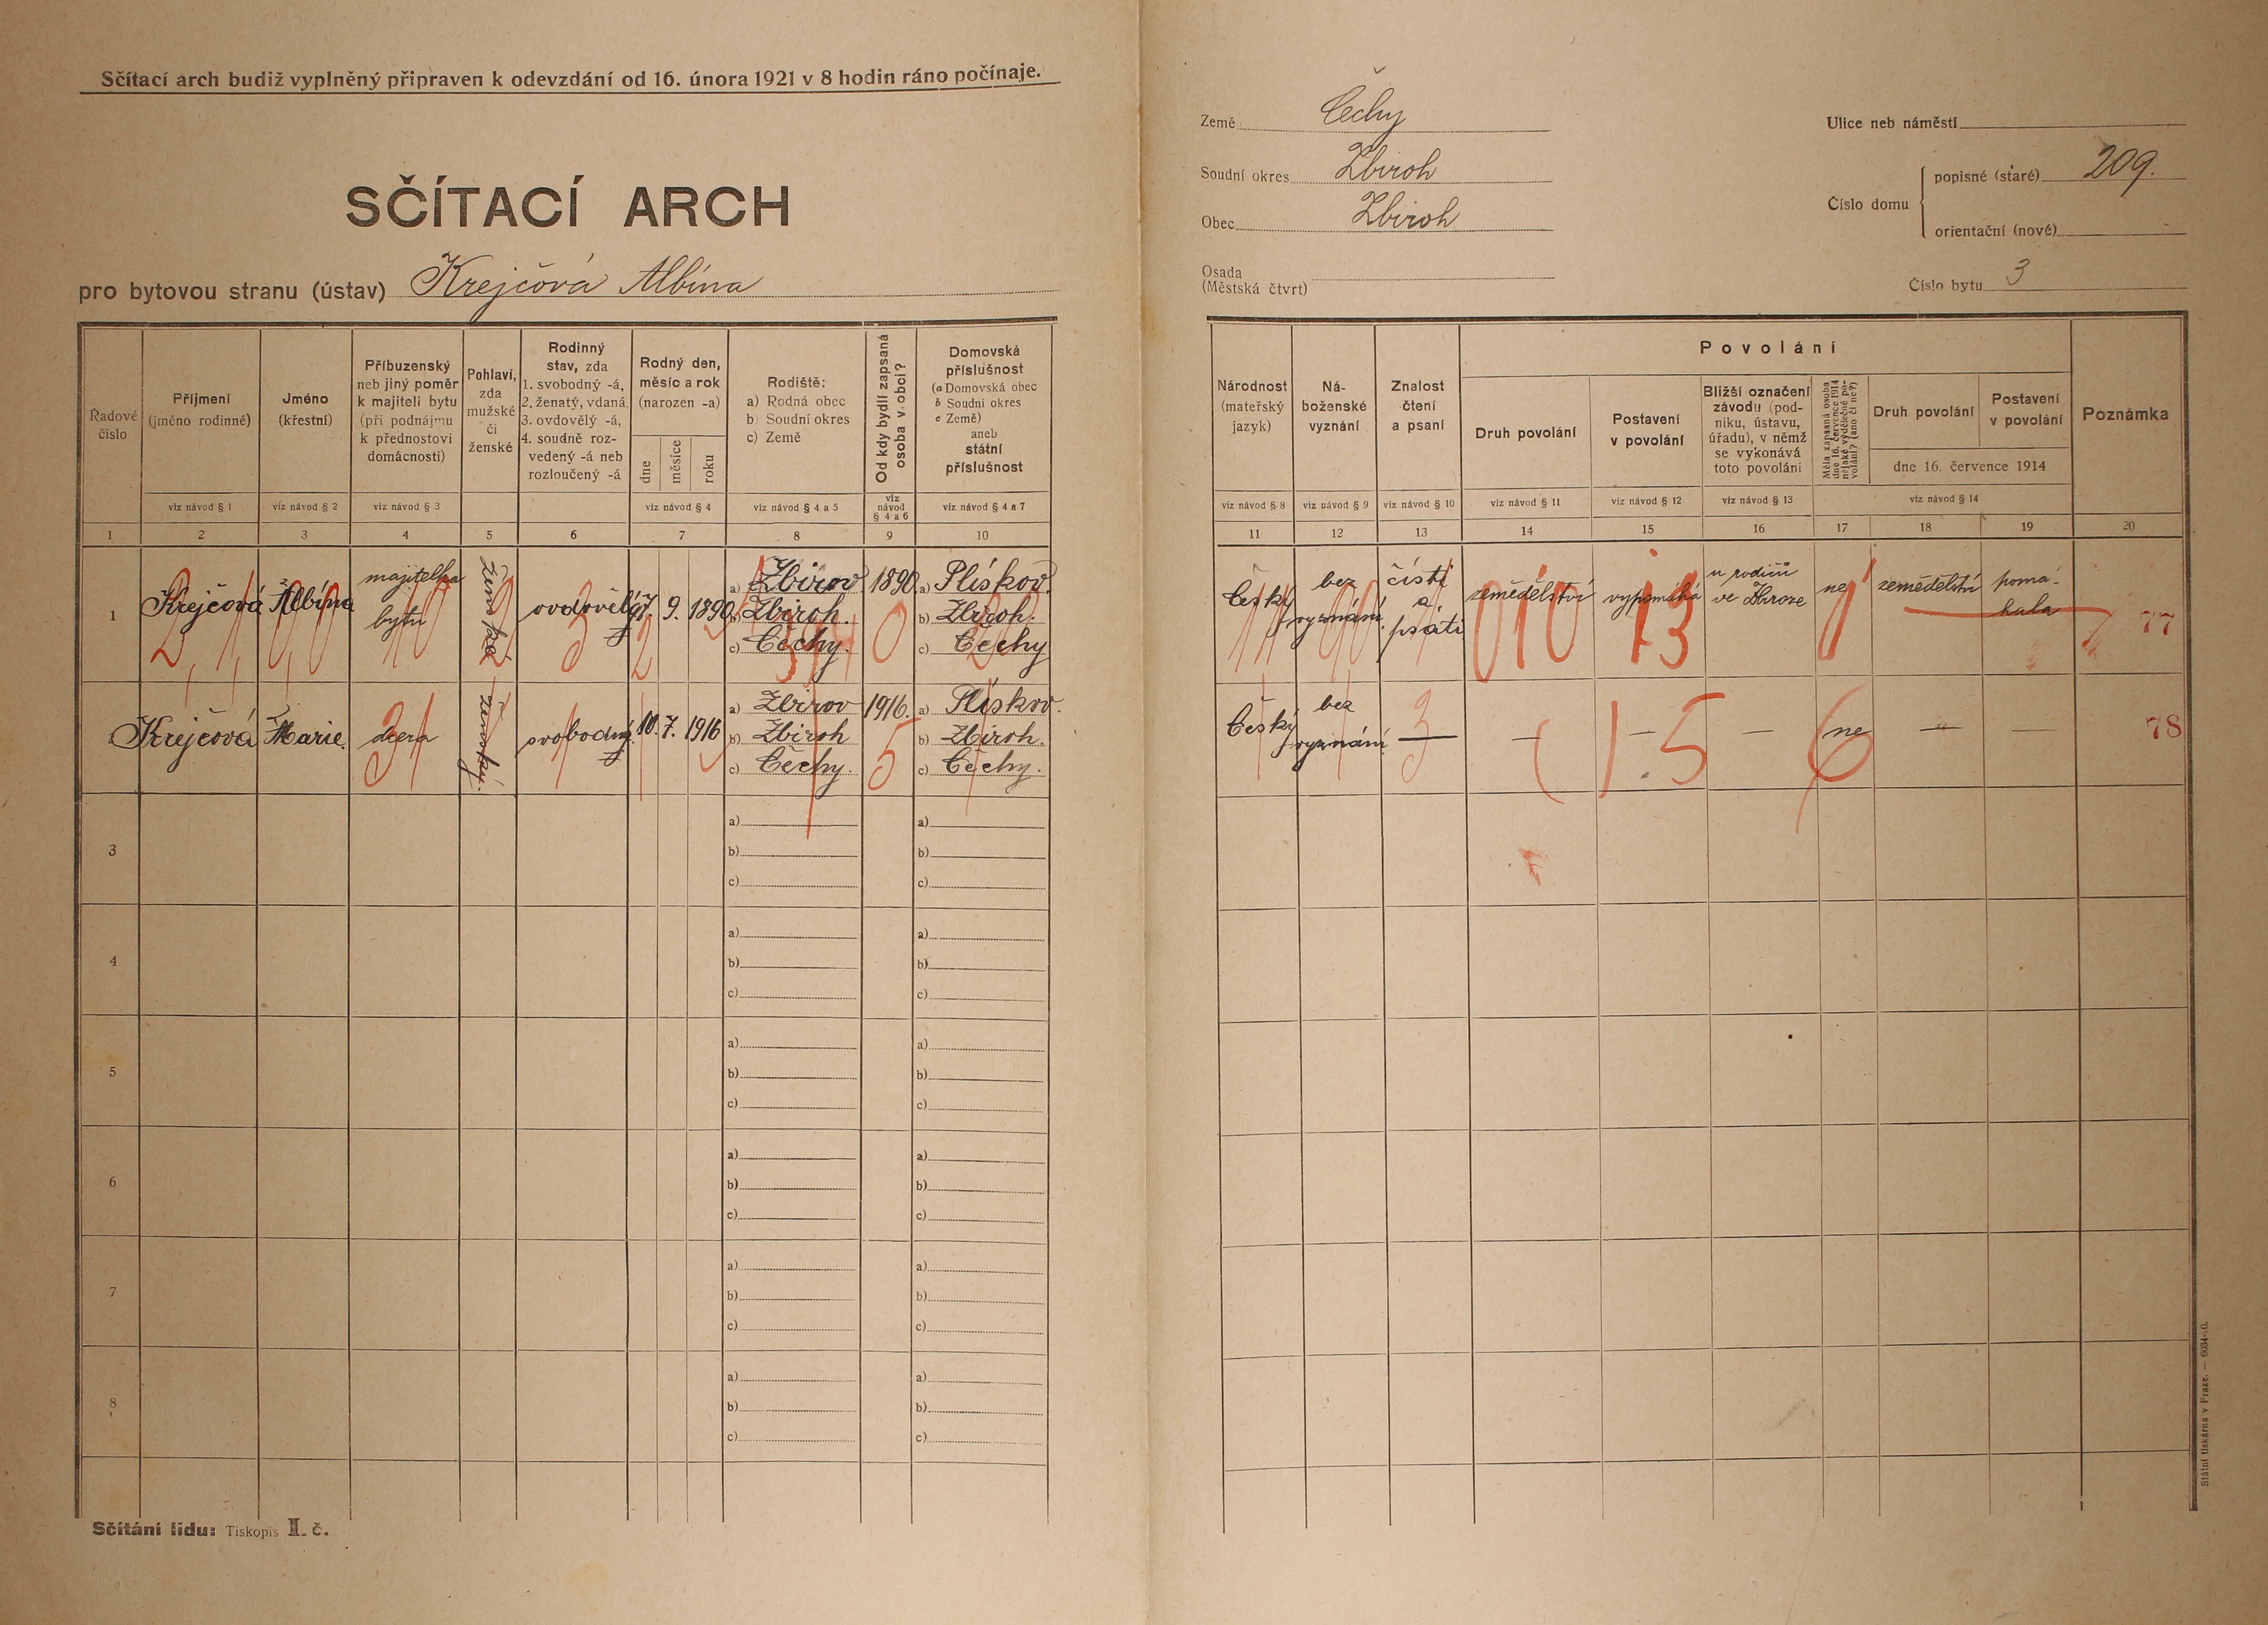 Sčítací arch budiž vyplněný připraven k odevzdání od 16. února 1921 v 8 hodin ráno počínaje.
SČÍTACÍ ARCH
pro bytovou stranu (ústav) Krejčová Albína
Země Čechy
Soudní okres Zbiroh
Obec Zbiroh
Osada
(Městská čtvrt)
Ulice neb náměstí
Číslo domu
popisné (staré) 209.
orientační (nové)
Číslo bytu 3
Řadové
číslo
Příjmení
(jméno rodinné)
Jméno
(křestní)
Příbuzenský
neb jiný poměr
k majiteli bytu
(při podnájmu
k přednostovi
domácnosti)
Pohlaví,
zda
mužské
či
ženské
Rodinný
stav, zda
1. svobodný -á,
2. ženatý, vdaná,
3. ovdovělý -á,
4. soudně roz-
vedený -á neb
rozloučený -á
Rodný den,
měsíc a rok
(narozen -a)
dne
měsíce
roku
Rodiště:
a) Rodná obec
b) Soudní okres
c) Země
Od kdy bydlí zapsaná
osoba v obci?
Domovská
příslušnost
(a Domovská obec
b Soudní okres
c Země)
aneb
státní
příslušnost
Národnost
(mateřský
jazyk)
Ná-
boženské
vyznání
Znalost
čtení
a psaní
Povolání
Druh povolání
Postavení
v povolání
Bližší označení
závodu (pod-
niku, ústavu,
úřadu), v němž
se vykonává
toto povolání
Měla zapsaná osoba
dne 16. července 1914
nějaké výdělečné po-
volání? (ano či ne?)
Druh povolání
Postavení
v povolání
dne 16. července 1914
Poznámka
viz návod § 1
viz návod § 2
viz návod § 3
viz návod § 4
viz návod § 4 a 5
viz
návod
§ 4 a 6
viz návod § 4 a 7
viz návod § 8
viz návod § 9
viz návod § 10
viz návod § 11
viz návod § 12
viz návod § 13
viz návod § 14
1 2 3 4 5 6 7 8 9 10 11 12 13 14 15 16 17 18 19 20
1
Krejčová
Albína
majitelka
bytu
ženské
ovdovělý
9. 1890
a) Zbirov
b) Zbiroh.
c) Čechy.
1890
a) Plískov.
b) Zbiroh.
c) Čechy
Český
bez
vyznání
čísti
a
psáti
zemědělství
vypomáhá
u rodičů
ve Zbiroze
ne
zemědělství
pomá-
hala
77
010
13
Krejčová
Marie.
dcera
ženský.
svobodný
10. 7. 1916
a) Zbirov
b) Zbiroh
c) Čechy.
1916.
a) Plískov.
b) Zbiroh.
c) Čechy.
Český
bez
vyznání
—
—
—
—
ne
—
—
78
3
a)
b)
c)
a)
b)
c)
4
a)
b)
c)
a)
b)
c)
5
a)
b)
c)
a)
b)
c)
6
a)
b)
c)
a)
b)
c)
7
a)
b)
c)
a)
b)
c)
8
a)
b)
c)
a)
b)
c)
Sčítání lidu: Tiskopis I. č.
Státní tiskárna v Praze. —